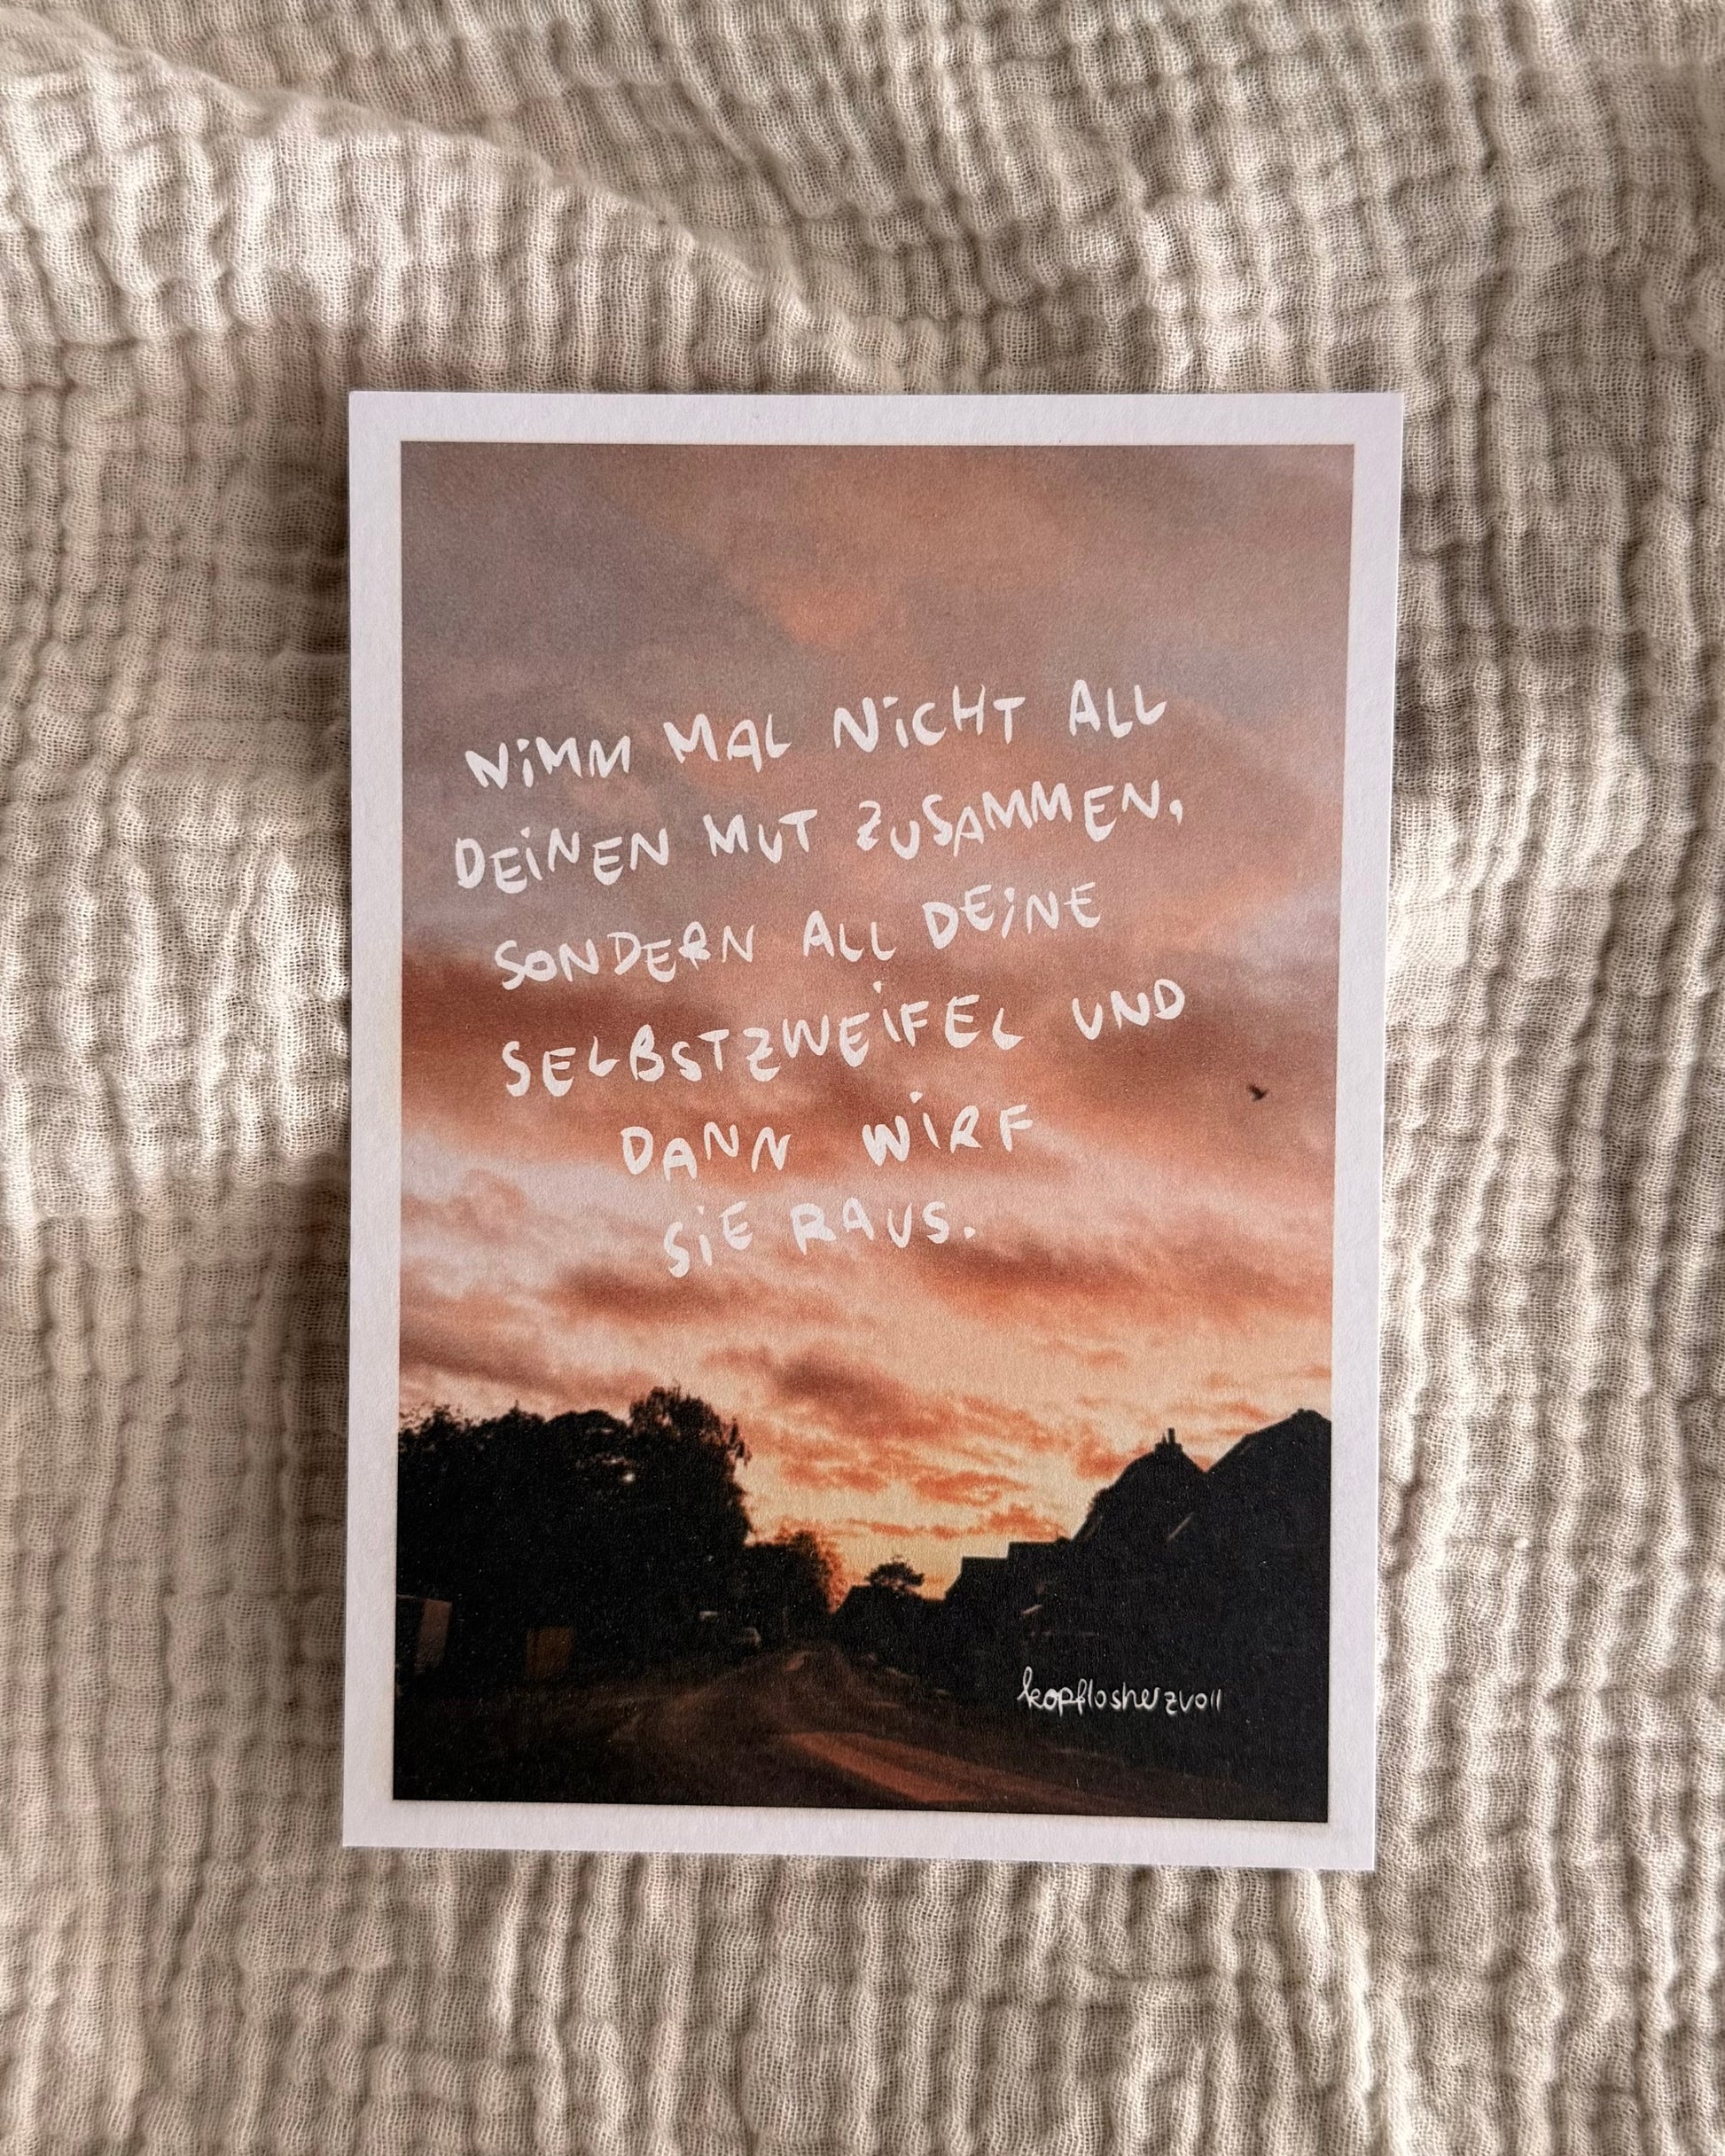 NIMM MAL NICHT ALL
DEINEN MUT ZUSAMMEN,
SONDERN ALL DEINE
SELBSTZWEIFEL UND
DANN WIRF
SIE RAUS.
kopflosherzvoll